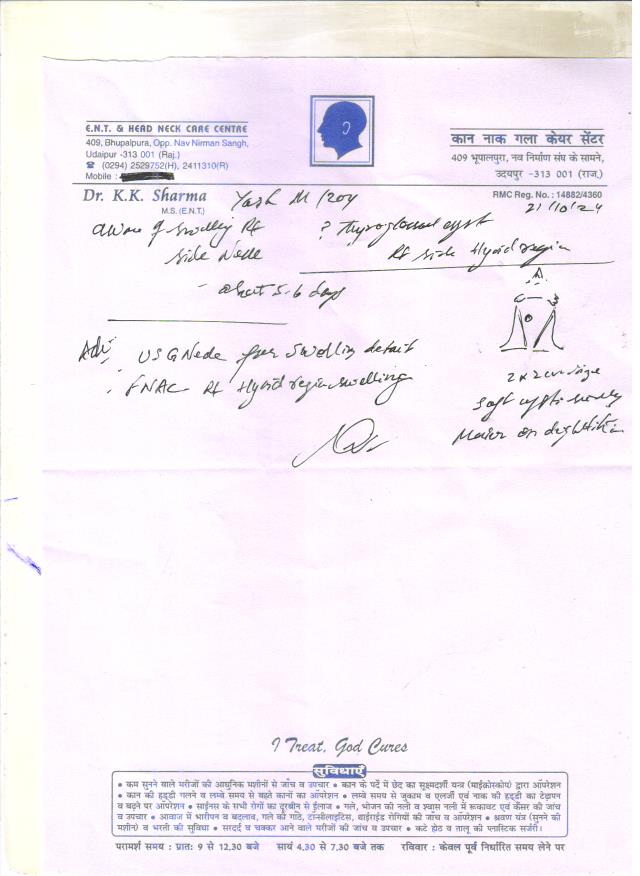 E.N.T. & HEAD NECK CARE CENTRE
409, Bhupalpura, Opp. Nav Nirman Sangh,
Udaipur -313 001 (Raj.)
☎ (0294) 2529752(H), 2411310(R)
Mobile :
कान नाक गला केयर सेंटर
409 भूपालपुरा, नव निर्माण संघ के सामने,
उदयपुर -313 001 (राज.)
Dr. K.K. Sharma
M.S. (E.N.T.)
RMC Reg. No. : 14882/4360
21/10/24
Yash M/20y
? Thyroglossal cyst
Rt side Hyoid region
of swelling Rt
side Neck
- about 5-6 days
2 x 2 cm size
soft cystic
on
Adv
USG Neck for swelling detail
FNAC Rt Hyoid region swelling
I Treat, God Cures
सुविधाएँ
• कम सुनने वाले मरीजों की आधुनिक मशीनों से जाँच व उपचार • कान के पर्दे में छेद का सूक्ष्मदर्शी यन्त्र (माईक्रोस्कोप) द्वारा ऑपरेशन
• कान की हड्डी गलने व लम्बे समय से बहते कानों का ऑपरेशन • लम्बे समय से जुकाम व एलर्जी एवं नाक की हड्डी का टेढ़ापन
व बढ़ने पर ऑपरेशन • साईनस के सभी रोगों का दूरबीन से ईलाज • गले, भोजन की नली व श्वास नली में रूकावट एवं कैंसर की जांच
व उपचार • आवाज में भारीपन व बदलाव, गले की गाँठें, टॉन्सीलाइटिस, थाईराईड रोगियों की जांच व ऑपरेशन • श्रवण यंत्र (सुनने की
मशीन) व भरती की सुविधा • सरदर्द व चक्कर आने वाले मरीजों की जांच व उपचार • कटे होठ व तालू की प्लास्टिक सर्जरी।
परामर्श समय : प्रातः 9 से 12.30 बजे सायं 4.30 से 7.30 बजे तक रविवार : केवल पूर्व निर्धारित समय लेने पर